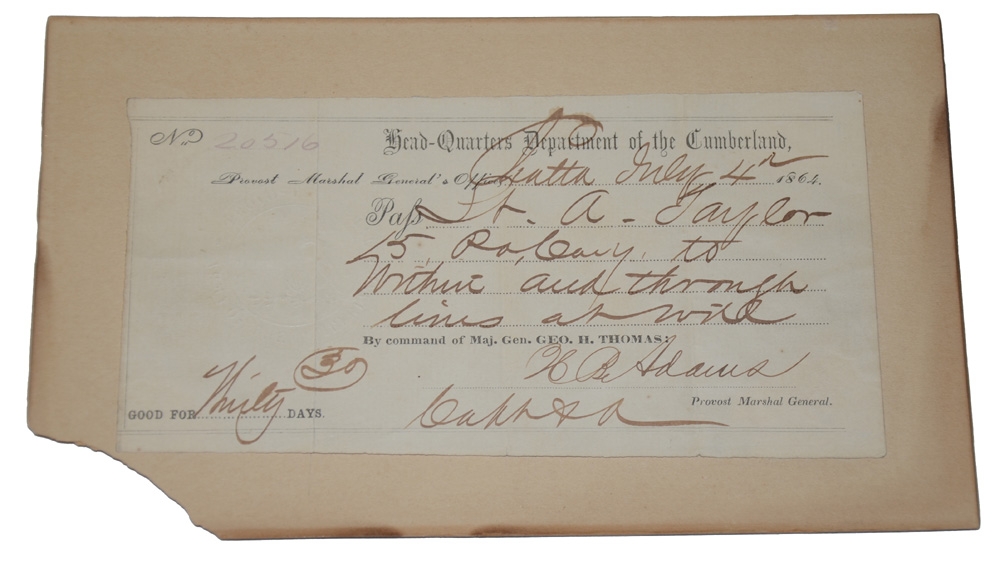 No 20516 Head-Quarters Department of the Cumberland,
Provost Marshal General's Office, Chatta July 4th 1864.
Pass Lt. A. Taylor
15, Pa, Cavy. to
Within and through
lines at will
By command of Maj. Gen. GEO. H. THOMAS:
Adams
Provost Marshal General.
GOOD FOR Thirty DAYS.
30
Capt